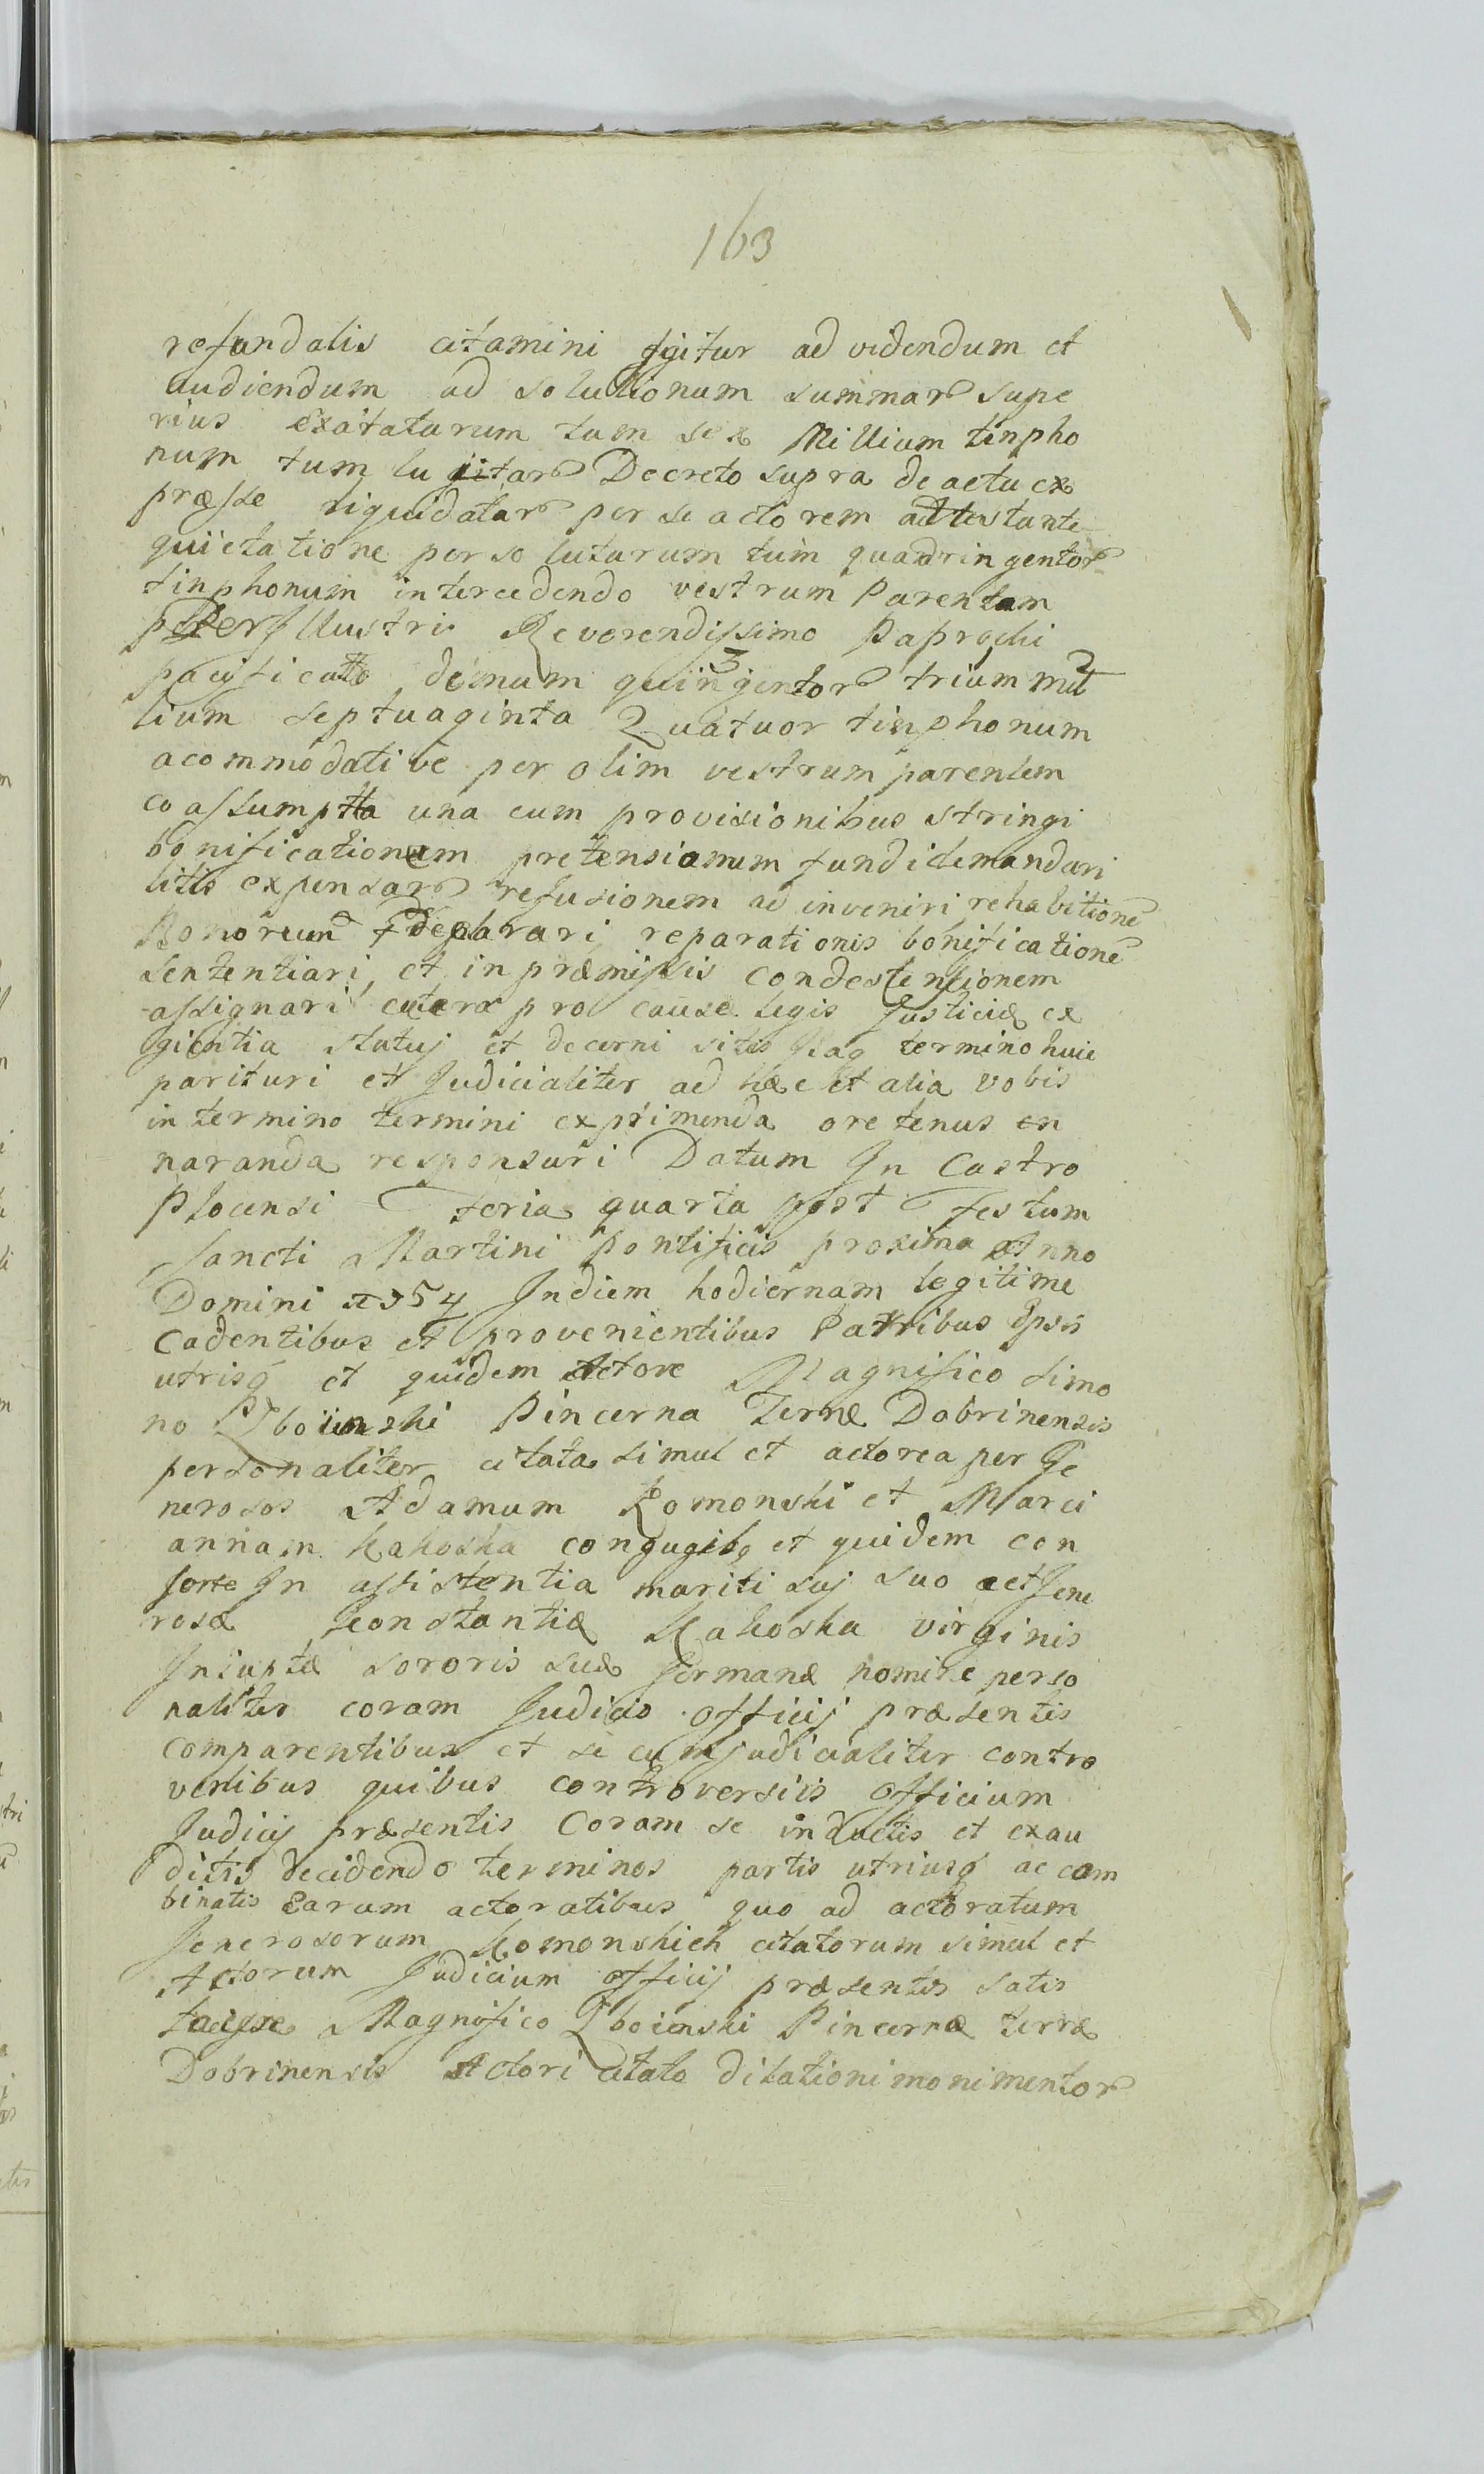 163
refundalis citamini igitur ad videndum et
audiendum ad solutionum summar supe
rius exatatarum tum sex Millium tinpho
num tum lu Decreto supra de actu ex
præsse riquidatar per se actorem attestante
quietatione persolutarum tum quadringentor
tinphonum intercedendo vestrum Parentem
perJllustri Reverendissimo Paprochi
pacificatto demum quingentor trium mil
lium septuaginta Quatuor tinphonum
acommodative per olim vestrum parentem
coassumptta una cum provisionibus stringi
bonificationem pretensionum fundi demandari
litis expensar refusionem ad inveniri rehabitione
Bonorum declarari reparationis bonificatione
sententiari, et in præmissis condestensionem
assignari cætera pro cause legis Justiciæ ex
gientia statuj et decerni sitis Jtaq termino huic
parituri et Judicialiter ad hæc et alia vobis
in termino termini exprimenda ore tenus en
naranda responsuri Datum Jn Castro
Plocensi Feria quarta post Festum
Sancti Martini Pontificis proxima Anno
Domini 1754 Jndiem hodiernam legitime
Cadentibus et provenientibus Partibus Ipsis
utrisq et quidem Actore Magnifico Simo
no Zboinski Pincerna Terræ Dobrinensis
personaliter citata simul et actorea per Ge
nerosos Adamum Komonski et Marci
annam Kakoska conjugibq et quidem con
sorte Jn assistentia mariti suj suo et Gene
rosæ Constantiæ Kakoska virginis
Jnnuptæ sororis suæ Germanæ nomine perso
naliter coram Judicio officij præsentis
comparentibus et se cum judicialiter contro
vertibus quibus controversiis officium
Judicij præsentis Coram se inductis et exau
ditis decidendo terminos partis utriusq ac com
binatis Earum actoratibus quo ad actoratum
Generosorum Komonskich citatorum simul et
Actorum Judicium officij præsentis satis
Magnifico Zboienski Pincernæ terræ
Dobrinensis Actori citato dilationi monimentor